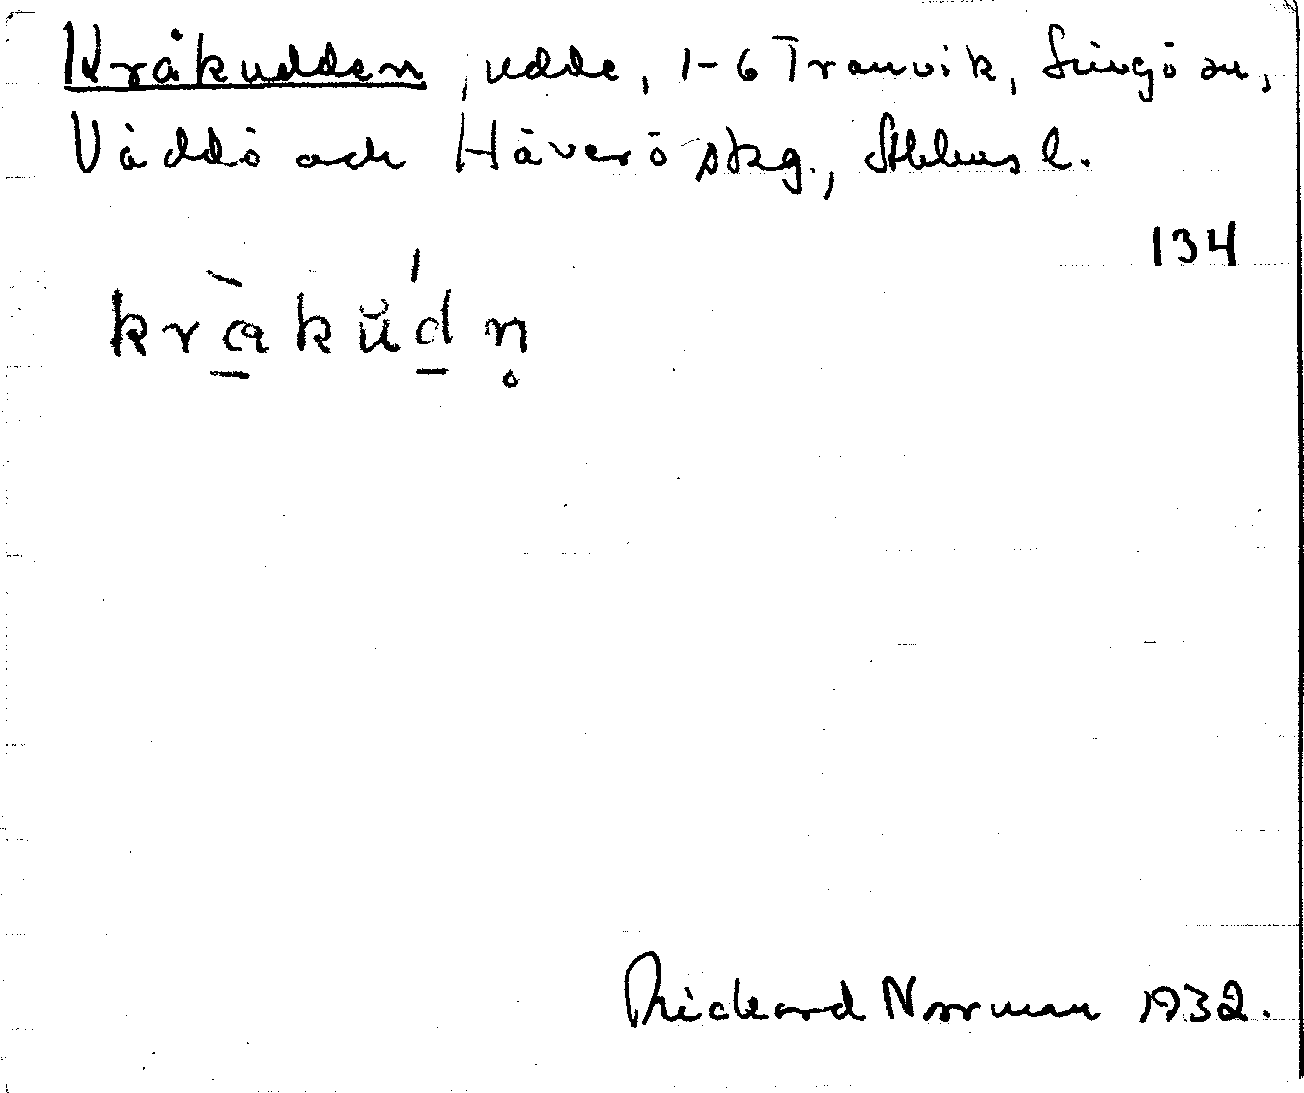 Kråkudden, udde, 1-6 Tranvik, Singö sn,
Väddö och Häverö skg., Sthlms l.
134
kràkŭ́dn̥
Rickard Norrman 1932.